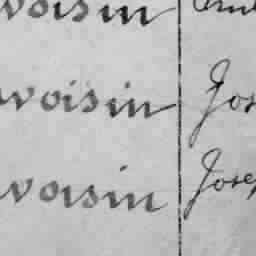 voisin
voisin Jos
voisin Josep